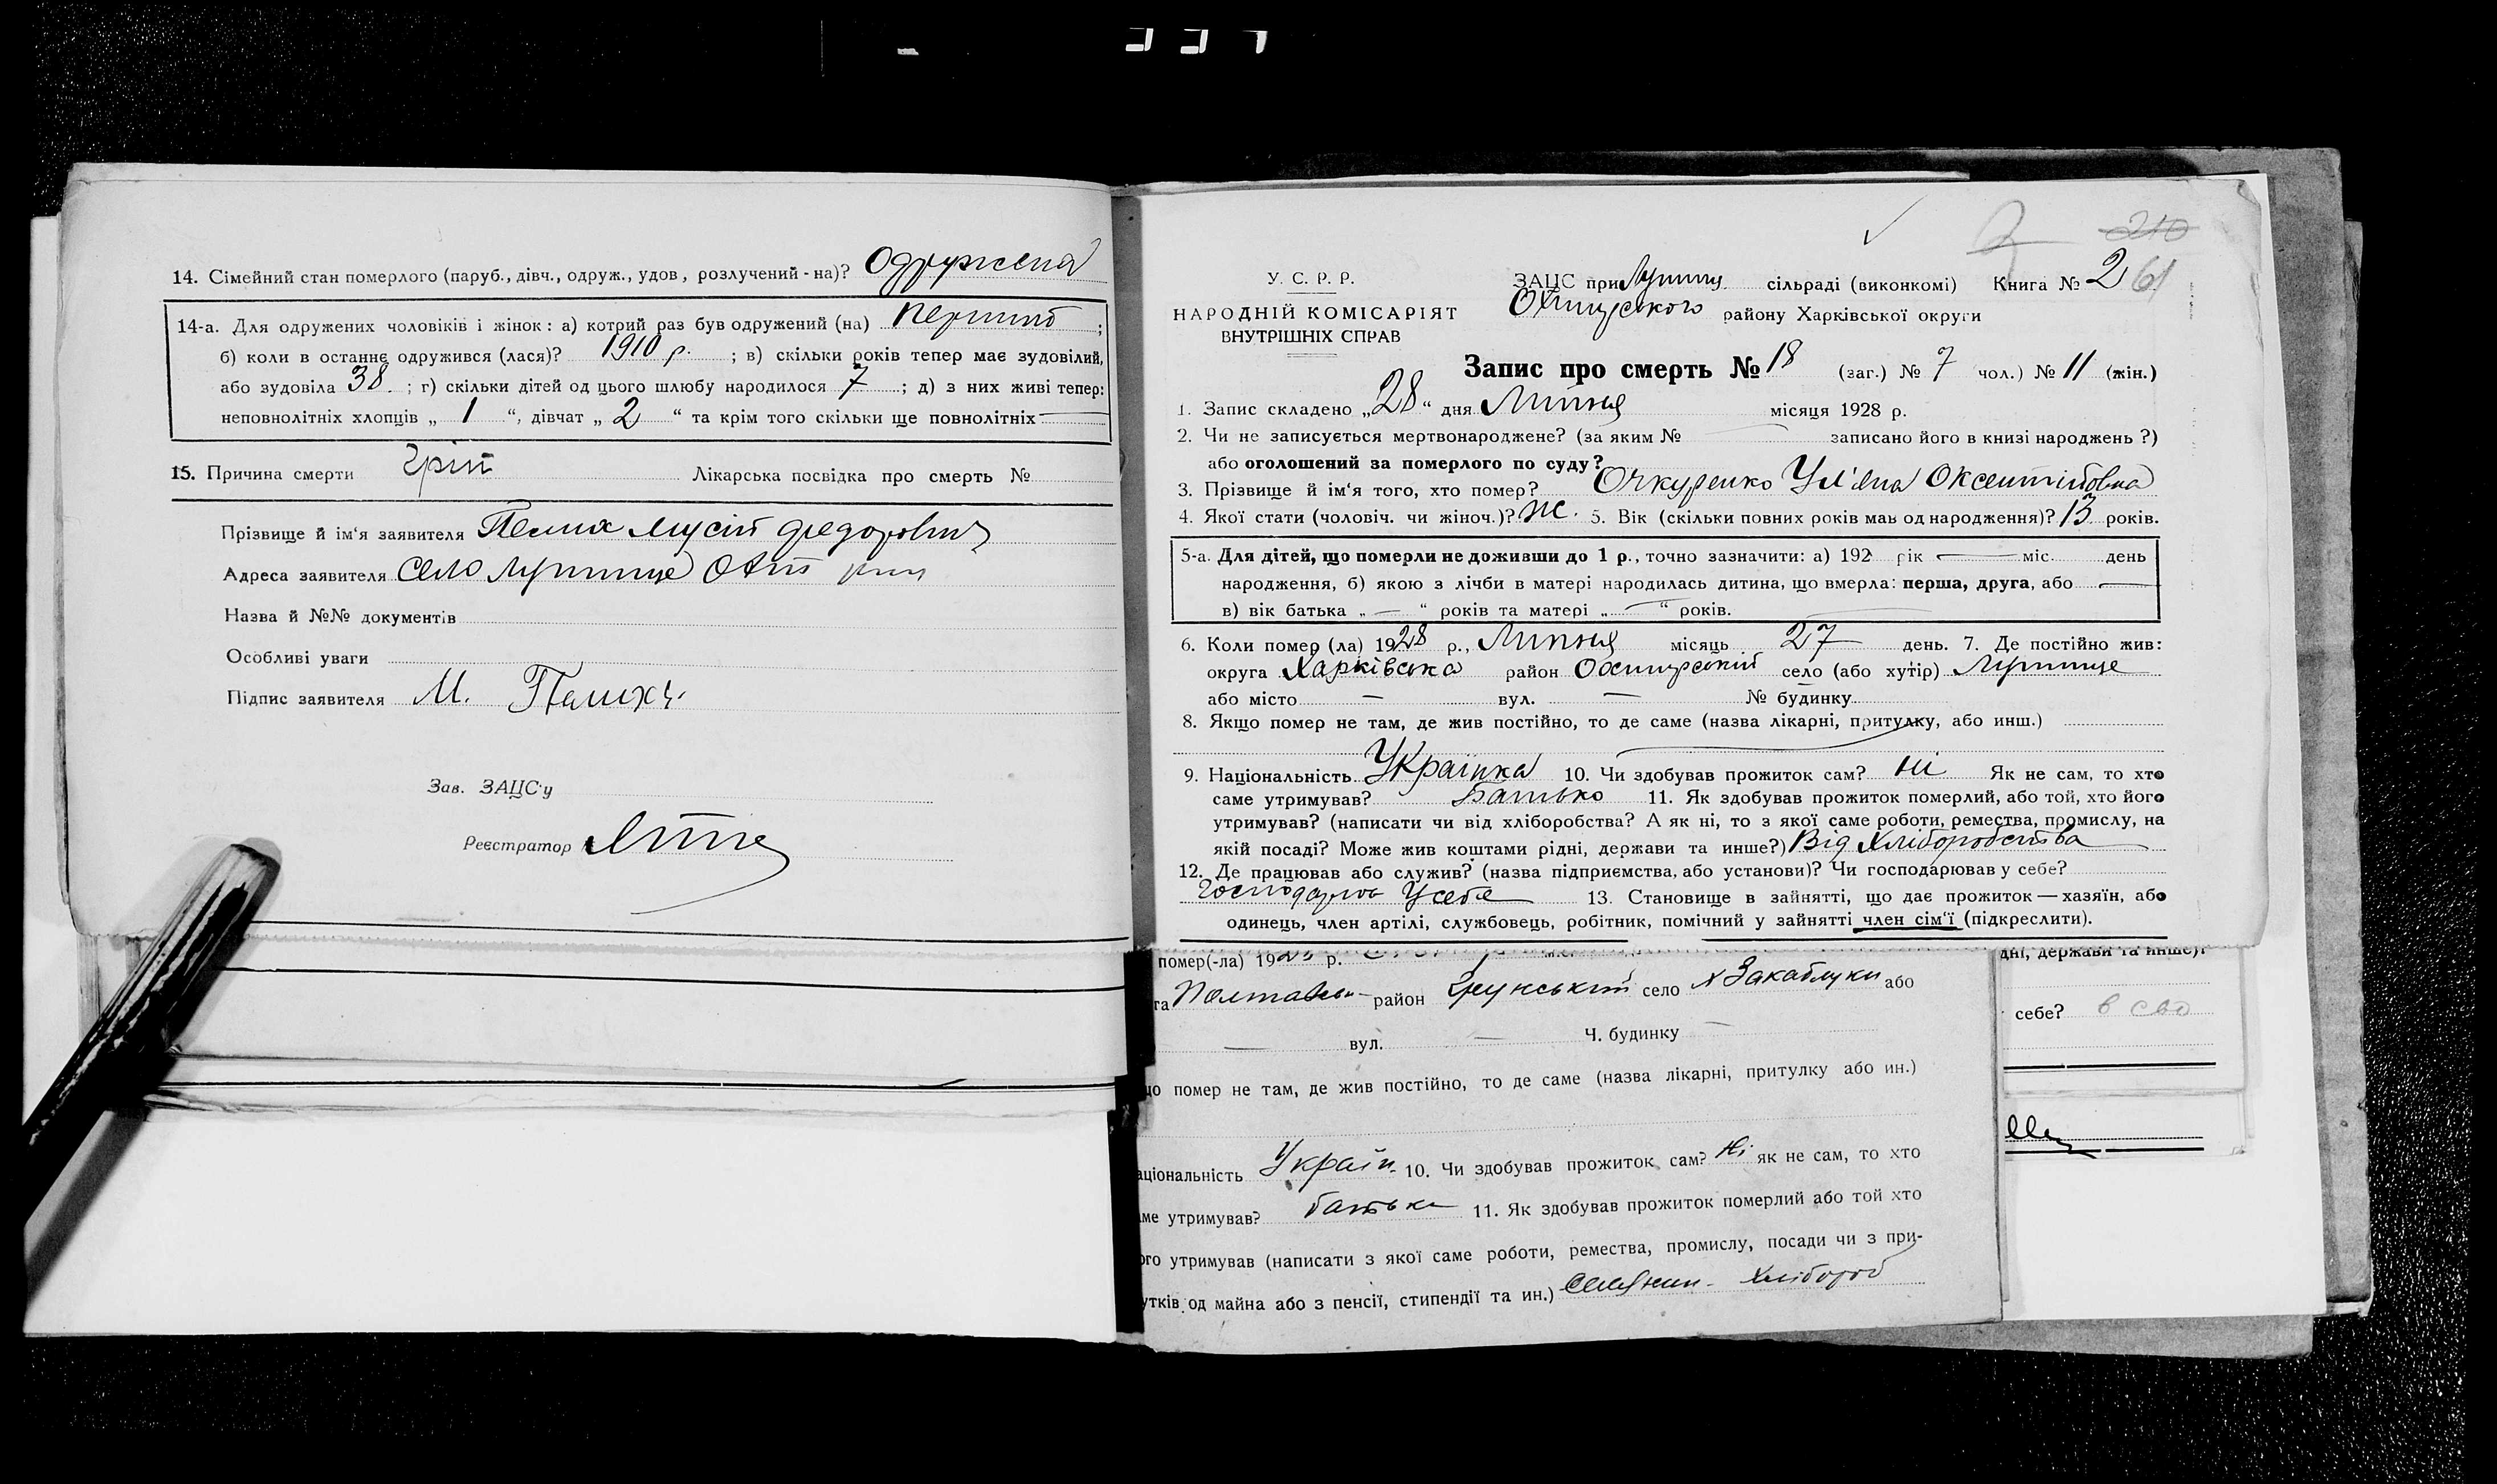 14. Сімейний стан померлого (паруб., дівч., одруж., удов., розлучений-на)? Одружена
14-а. Для одружених чоловіків і жінок: а) котрий раз був одружений (на) перший ;
б) коли в останнє одружився (лася)? 1910 р. ; в) скільки років тепер має зудовілий,
або зудовіла 38 ; г) скільки дітей од цього шлюбу народилося 7 ; д) з них живі тепер:
неповнолітніх хлопців „ 1 “, дівчат „ 2 “ та крім того скільки ще повнолітніх —
15. Причина смерти Гріп Лікарська посвідка про смерть №
Прізвище й ім'я заявителя Пелих Мусій Федорович
Адреса заявителя село Лутище
Назва й №№ документів
Особливі уваги
Підпис заявителя М. Пелих
Зав. ЗАЦС'у
Реєстратор
210
У. С. Р. Р.
НАРОДНІЙ КОМІСАРІЯТ
ВНУТРІШНІХ СПРАВ
ЗАЦС при Лутищ. сільраді (виконкомі) Книга № 2 61
Охтирського району Харківської округи
Запис про смерть № 18 (заг.) № 7 чол.) № 11 (жін.)
1. Запис складено „28“ дня Липня місяця 1928 р.
2. Чи не записується мертвонароджене? (за яким № записано його в книзі народжень ?)
або оголошений за померлого по суду?
3. Прізвище й ім'я того, хто помер? Очкуренко Уляна Оксентіовна
4. Якої стати (чоловіч. чи жіноч.)? ж. 5. Вік (скільки повних років мав од народження)? 13 років.
5-а. Для дітей, що померли не доживши до 1 р., точно зазначити: а) 192 рік — міс. день
народження, б) якою з лічби в матері народилась дитина, що вмерла: перша, друга, або —
в) вік батька „ — “ років та матері „ — “ років.
6. Коли помер (ла) 1928 р., Липня місяць 27 день. 7. Де постійно жив:
округа Харківська район Охтирський село (або хутір) Лутище
або місто — вул. — № будинку
8. Якщо помер не там, де жив постійно, то де саме (назва лікарні, притулку, або инш.)
9. Національність Українка 10. Чи здобував прожиток сам? ні Як не сам, то хто
саме утримував? Батько 11. Як здобував прожиток померлий, або той, хто його
утримував? (написати чи від хліборобства? А як ні, то з якої саме роботи, ремества, промислу, на
якій посаді? Може жив коштами рідні, держави та инше?) Від Хліборобства
12. Де працював або служив? (назва підприємства, або установи)? Чи господарював у себе?
Господарюв У себе 13. Становище в зайнятті, що дає прожиток — хазяїн, або
одинець, член артілі, службовець, робітник, помічний у зайнятті член сім'ї (підкреслити).
помер(-ла) 192 р.
га Полтавськ район Грунський село х Закаблуки або
— вул. — Ч. будинку —
що помер не там, де жив постійно, то де саме (назва лікарні, притулку або ин.)
аціональність Україн. 10. Чи здобував прожиток сам? Ні як не сам, то хто
аме утримував? батько 11. Як здобував прожиток померлий або той хто
ого утримував (написати з якої саме роботи, ремества, промислу, посади чи з при-
утків од майна або з пенсії, стипендії та ин.) Селянин - Хлібороб
дні, держави та инше)?
себе? в сво